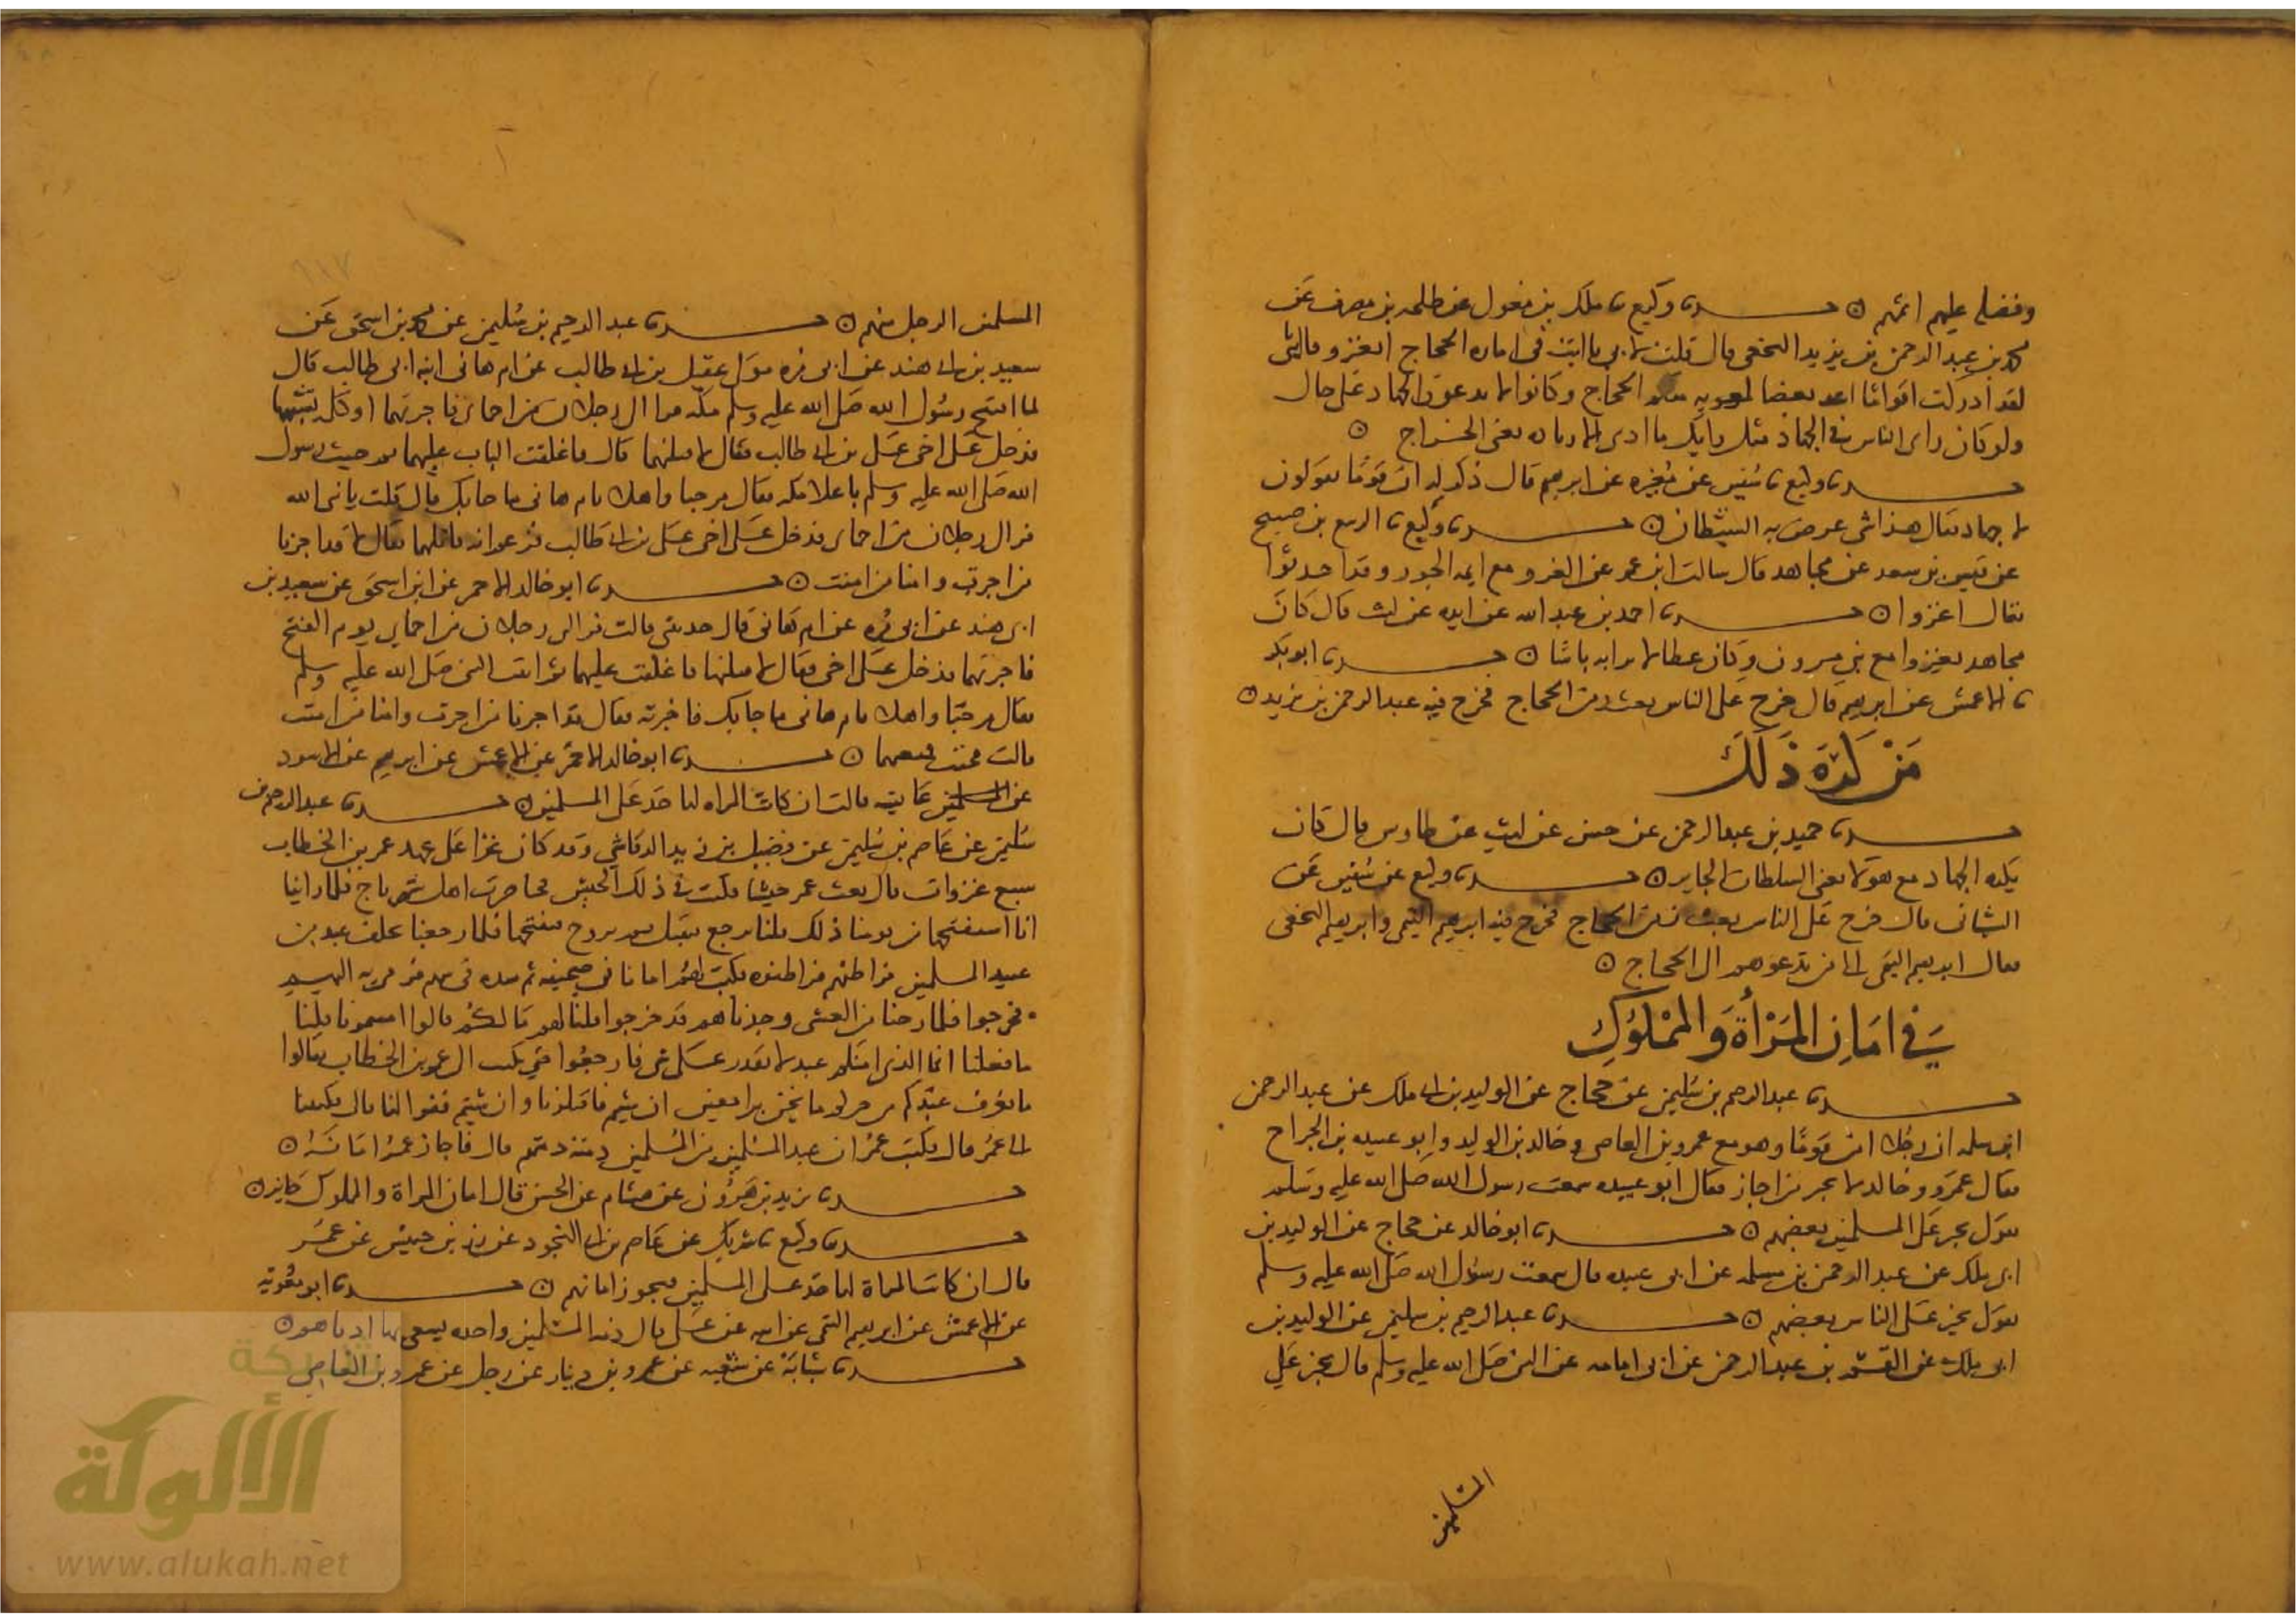 وفضله عليهم اثمهم ○ حدثنا وكيع نا ملك بن مغول عن طلحه بن مصرف عن
محمد بن عبد الرحمن بن يزيد النخعى قال قلت لابى يا ابت فى اماره الحجاج اتغزو قال يا بنى
لقد ادركت اقواما اشد بغضا منكم للحجاج وكانوا لا يدعون الجهاد على حال
ولو كان راى الناس فى الجهاد مثل رايك ما ادى الاتاوه يعنى الخراج ○
حدثنا وكيع نا سفين عن مغيره عن ابرهيم قال ذكر له ان قوما يقولون
لا جهاد فقال هذا شى عرض به الشيطان ○ حدثنا وكيع نا الربيع بن صبيح
عن قيس بن سعد عن مجاهد قال سالت ابن عمر عن الغزو مع ايمه الجور وقد احدثوا
فقال اغزوا ○ حدثنا احمد بن عبد الله عن زايده عن ليث قال كان
مجاهد يغزوا مع بنى مرون وكان عطا لا يرا به باسا ○ حدثنا ابو بكر
نا الاعمش عن ابرهيم قال خرج على الناس بعث زمن الحجاج فخرج فيه عبد الرحمن بن يزيد ○
مَنْ كَرِهَ ذَلكَ
حدثنا حميد بن عبد الرحمن عن حسن عن ليث عن طاوس قال كان
يكره الجهاد مع هولا يعنى السلطان الجاير ○ حدثنا وكيع عن سفين عن
الشيبانى قال خرج على الناس بعث زمن الحجاج فخرج فيه ابرهيم التيمى وابرهيم النخعى
فقال ابرهيم التيمى الى من تدعوهم الى الحجاج ○
فى امَانِ المَرْأةِ وَالممْلُوكِ
حدثنا عبد الرحيم بن سليمن عن حجاج عن الوليد بن ابى ملك عن عبد الرحمن
ابن سلمه ان رجلا امن قوما وهو مع عمرو بن العاصى وخالد بن الوليد وابو عبيده بن الجراح
فقال عمرو وخالد لا نجير من اجار فقال ابو عبيده سمعت رسول الله صلى الله عليه وسلم
يقول يجير على المسلمين بعضهم ○ حدثنا ابو خالد عن حجاج عن الوليد بن
ابى ملك عن عبد الرحمن بن مسلمه عن ابى عبيده قال سمعت رسول الله صلى الله عليه وسلم
يقول يجير على الناس بعضهم ○ حدثنا عبد الرحيم بن سليمن عن الوليد بن
ابى ملك عن القسم بن عبد الرحمن عن ابى امامه عن النبى صلى الله عليه وسلم قال يجير على
المسلمين
المسلمين الرجل منهم ○ حدثنا عبد الرحيم بن سليمن عن محمد بن اسحق عن
سعيد بن ابى هند عن ابى مره مولى عقيل بن ابى طالب عن ام هانى ابنه ابى طالب قال
لما افتتح رسول الله صلى الله عليه وسلم مكه فر الى رجلان من احماى فاجرتهما او كلمه تشبهها
فدخل على اخى على بن ابى طالب فقال لاقتلنهما قال فاغلقت الباب عليهما ثم جيت رسول
الله صلى الله عليه وسلم باعلا مكه فقال مرحبا واهلا بام هانى ما جا بك قال قلت يا نبى الله
فر الى رجلان من احماى فدخل على اخى على بن ابى طالب فزعم انه قاتلهما فقال لا قد اجرنا
من اجرت وامنا من امنت ○ حدثنا ابو خالد الاحمر عن ابن اسحق عن سعيد بن
ابى هند عن ابى مره عن ام هانى قال حدثتنى قالت فر الى رجلان من احماى يوم الفتح
فاجرتهما فدخل على اخى فقال لاقتلنهما فاغلقت عليهما ثم اتيت النبى صلى الله عليه وسلم
فقال مرحبا واهلا بام هانى ما جا بك فاخبرته فقال قد اجرنا من اجرت وامنا من امنت
قالت فجيت فمنعتهما ○ حدثنا ابو خالد الاحمر عن الاعمش عن ابرهيم عن الاسود
عن المسلمين عايشه قالت ان كانت المراه لتاخذ على المسلمين ○ حدثنا عبد الرحيم بن
سليمن عن عاصم بن سليمن عن فضيل بن زيد الرقاشى وقد كان غزا على عهد عمر بن الخطاب
سبع غزوات قال بعث عمر جيشا فكنت فى ذلك الجيش فحاصرنا اهل سهرياج فلما راينا
انا سنفتحها من يومنا ذلك قلنا نرجع فنقيل ثم نروح فنفتحها فلما رجعنا تخلف عبد من
عبيد المسلمين فراطنهم فراطنوه فكتب لهم امانا فى صحيفه ثم شده فى سهم فرمى به اليهم
فخرجوا فلما رحنا من العشى وجدناهم قد خرجوا قلنا لهم ما لكم قالوا امنتمونا قلنا
ما فعلنا انما الذى امنكم عبد لا يقدر على شى فارجعوا حتى نكتب الى عمر بن الخطاب فقالوا
ما نعرف عبدكم من حركم ما نحن براجعين ان شيتم فاقتلونا وان شيتم ففوا لنا قال فكتبنا
الى عمر قال فكتب عمر ان عبد المسلمين من المسلمين ذمته ذمتهم قال فاجاز عمر امانه ○
حدثنا يزيد بن هرون عن هشام عن الحسن قال امان المراة والمملوك جايز ○
حدثنا وكيع نا شريك عن عاصم بن ابى النجود عن زر بن حبيش عن عمر
قال ان كانت المراة لتاخذ على المسلمين فيجوز امانهم ○ حدثنا ابو معويه
عن الاعمش عن ابرهيم التيمى عن ابيه عن على قال ذمه المسلمين واحده يسعى بها ادناهم ○
حدثنا شبابة عن شعبه عن عمرو بن دينار عن رجل عن عمرو بن العاصى
شبكة
الألوكة
www.alukah.net